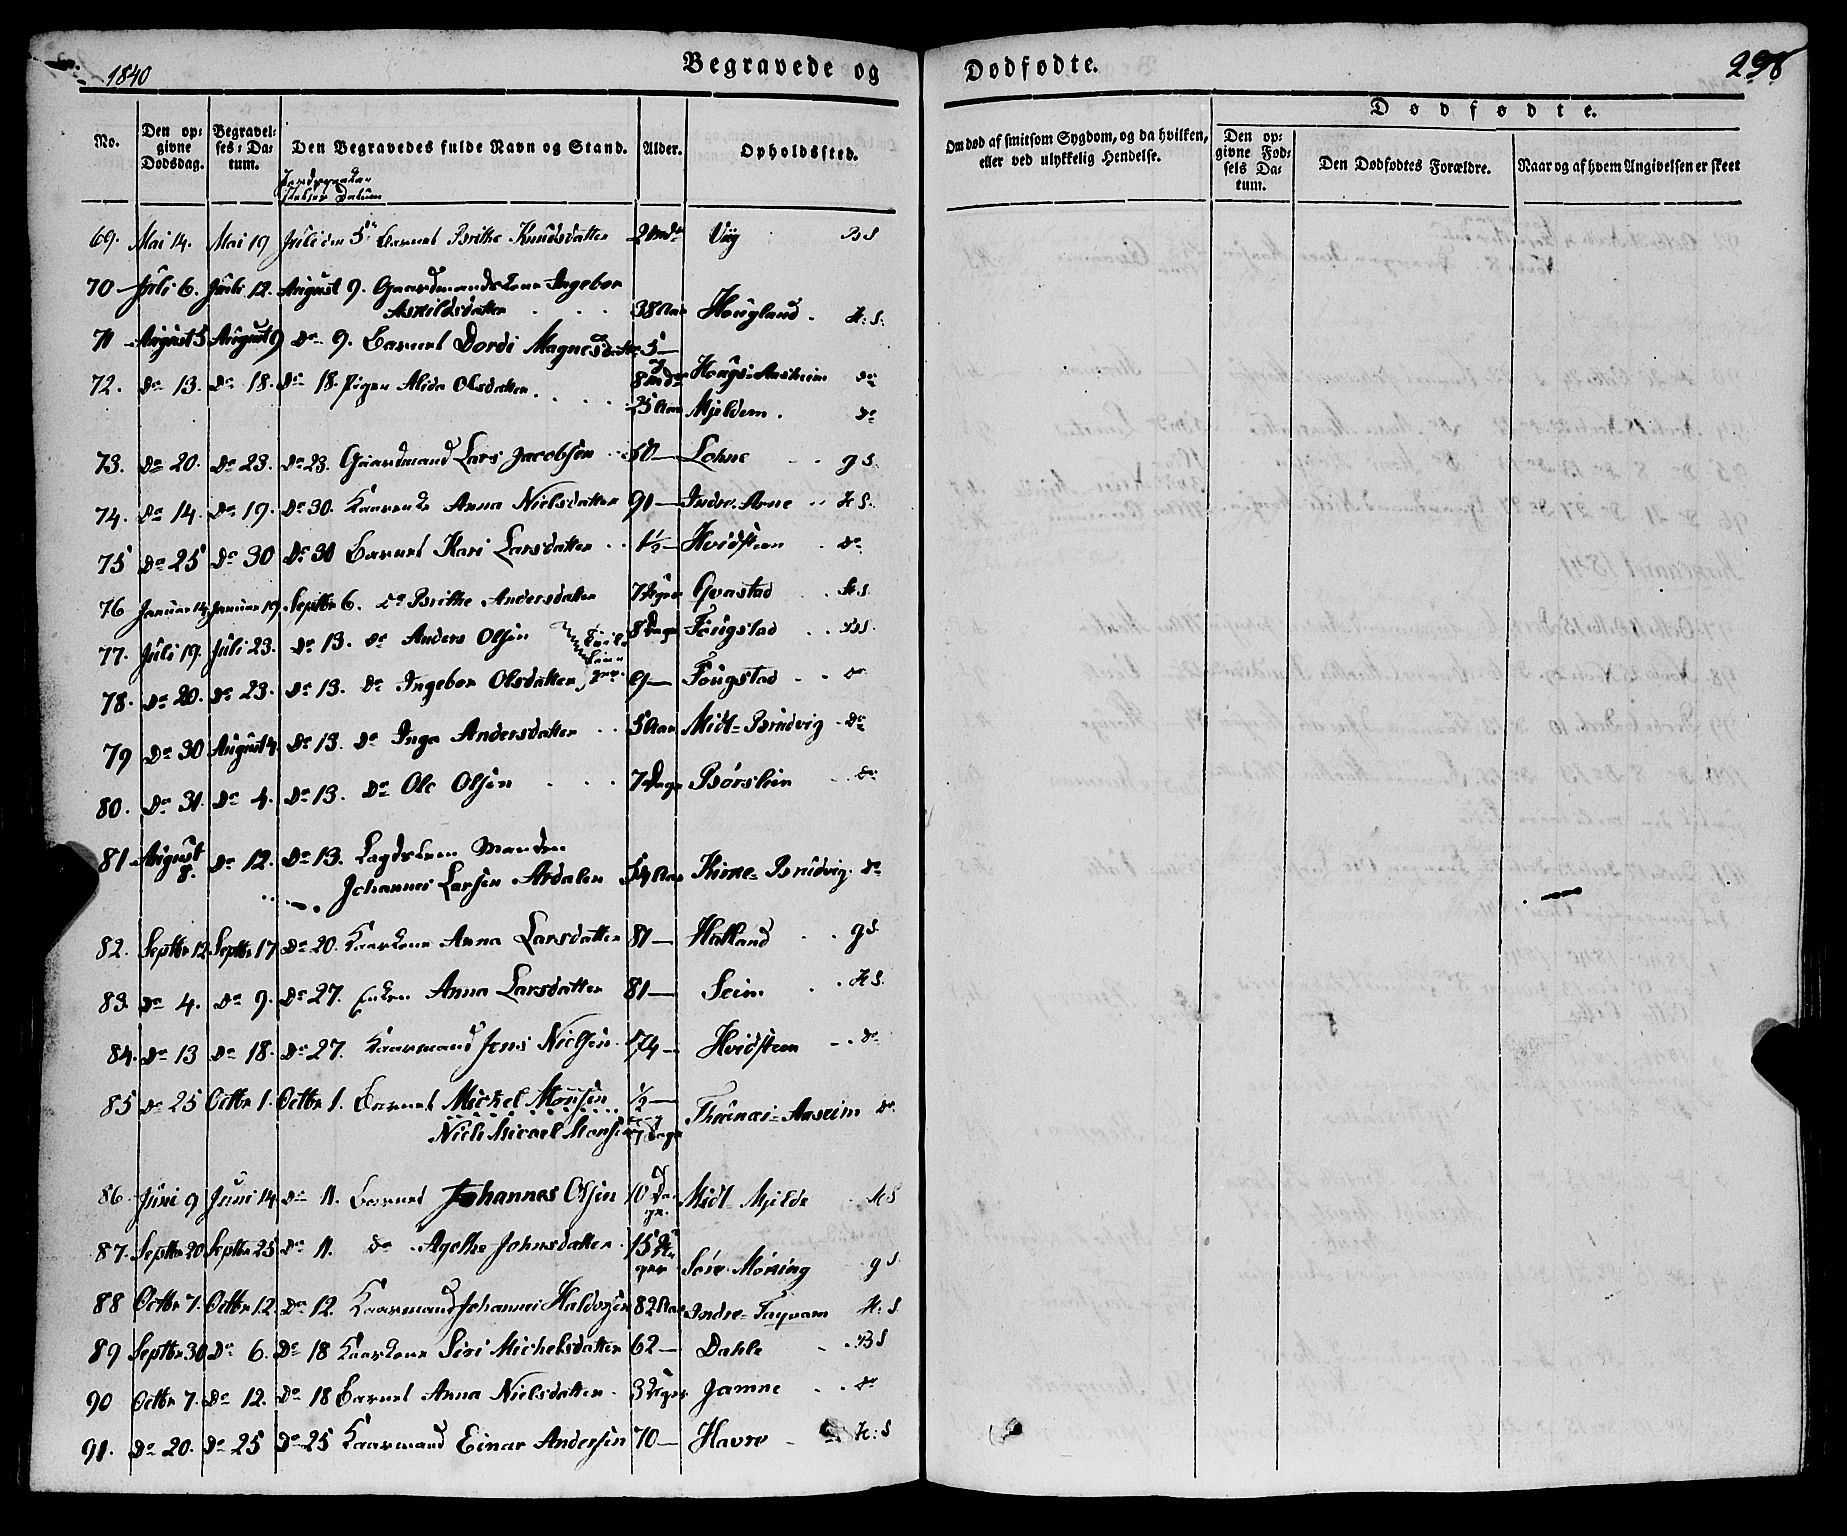 1840
Begravede og Dødfødte.
298
No.
Den opgivne Dødsdag.
Begravelses-Datum.
Den Begravedes fulde Navn og Stand.
Alder.
Opholdssted.
Om død af smitsom Sygdom, og da hvilken, eller ved ulykkelig Hendelse.
Dødfødte.
Den opgivne Fødsels Datum.
Den Dødfødtes Forældre.
Naar og af hvem Angivelsen er skeet
Datum
69. Mai 14. Mai 19 Juli den 5te Barnet Brithe Knudsdatter 2 Mdr BS
70 Juli 6. Juli 12. August 9. Gaardmandskone Ingebor
Askildsdatter 38 Aar Hougland H:S:
71 August 5 August 9 Do 9. Barnet Dordi Magnesdatter
72. Do 13. Do 18. Do 18. Pigen Alida Olsdatter 8 Mdr Hougs-Aasheim Do
25 Aar Mjeldem. Do
73. Do 20. Do 23. Do 23. Gaardmand Lars Jacobsen 50 — Lohne gS.
74. Do 14. Do 19. Do 30. Kaarenke Anna Nielsdatter 91 — Indre-Arne HS.
75 Do 25 Do 30 Do 30 Barnet Kari Larsdatter 1½ — Hvidsteen Do
76 Januar 14 Januar 19. Septbr 6. Do Brithe Andersdatter 7 Uger Gvastad HS.
77. Juli 19. Juli 23. Do 13. Do Anders Olsen 8 Dage Fougstad BS.
78. Do 20. Do 23. Do 13. Do Ingebor Olsdatter 9 — Fougstad Do
79 Do 30 August 4. Do 13. Do Inga Andersdatter 5 Aar Midt-Brudvig Do
80. Do 31. Do 4. Do 13. Do Ole Olsen 7 Dage Børslien Do
81 August 8. Do 12. Do 13. Lagdslem Manden
Johannes Larsen Ardalen Aar Kirke-Brudvig. Do
82. Septbr 12 Septbr 17 Do 20. Kaarkone Anna Larsdatter 81 — Hatland gS.
83. Do 4. Do 9. Do 27. Enken Anna Larsdatter 81 — Seim HS.
84. Do 13 Do 18. Do 27. Kaarmand Jens Nielsen 74 — Hvidsteen Do
85 Do 25 Octbr 1. Octbr 1. Barnet Mickel Monsen ½ —
Niels Micael Monsen 7 Dage Aaseim Do
86. Juni 9 Juni 14 Do 11. Barnet Johannes Olsen 10 Dage. Midt-Mjelde HS
87. Septbr 20 Septbr 25 Do 11. Do Agethe Johnsdatter 15 Uger Søre-Mørning gS.
88 Octbr 7. Octbr 12. Do 12. Kaarmand Johannes Haldorsen 82 Aar Indre-Taqvam H:S.
89 Septbr 30 Do 6. Do 18 Kaarkone Siri Michelsdatter 62 — Dahle BS
90 Octbr 7. Do 12. Do 18 Barnet Anna Nielsdatter 3 Uger Jamne Do
91. Do 20. Do 25 Do 25 Kaarmand Einar Andersen 70 — Havre H:S